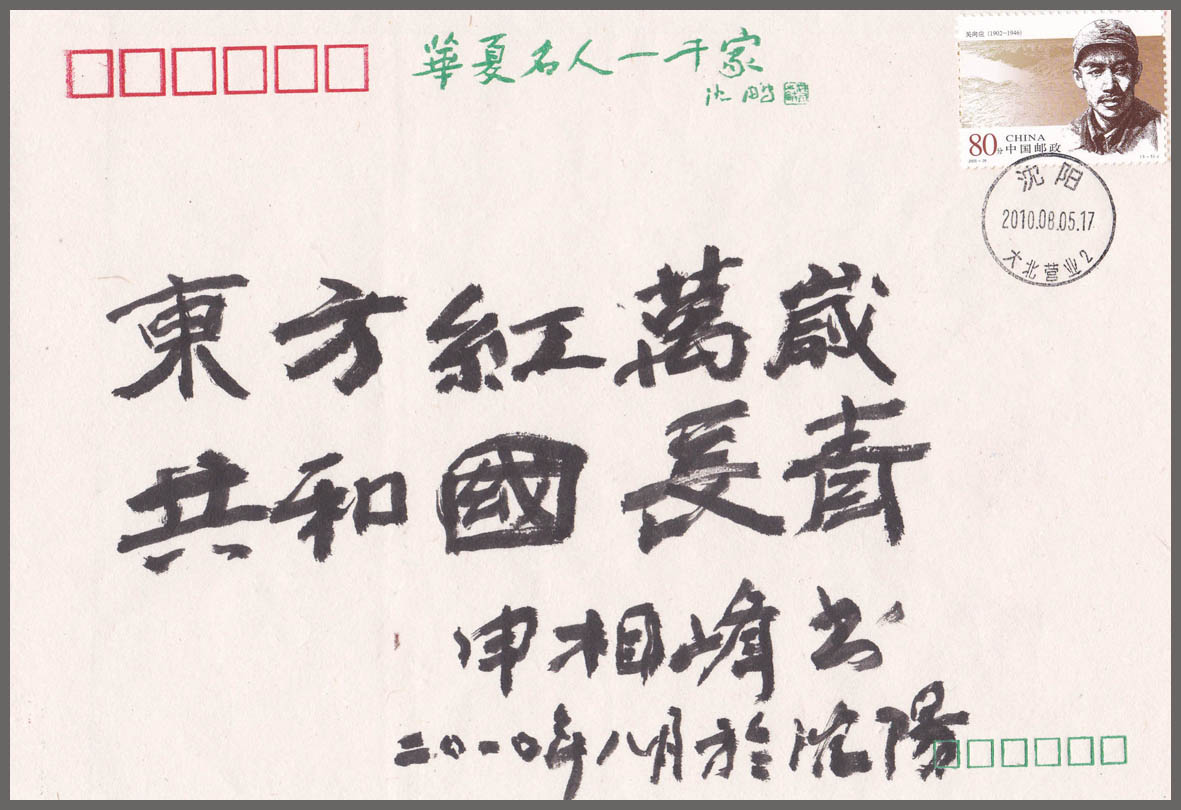 華夏名人一千家
沈鹏
吴向应 (1902-1946)
80分 CHINA
中国邮政
沈阳
2010.08.05.17
大北营业2
東方紅萬歲
共和國長青
申相峰书
二〇一〇年八月於沈陽